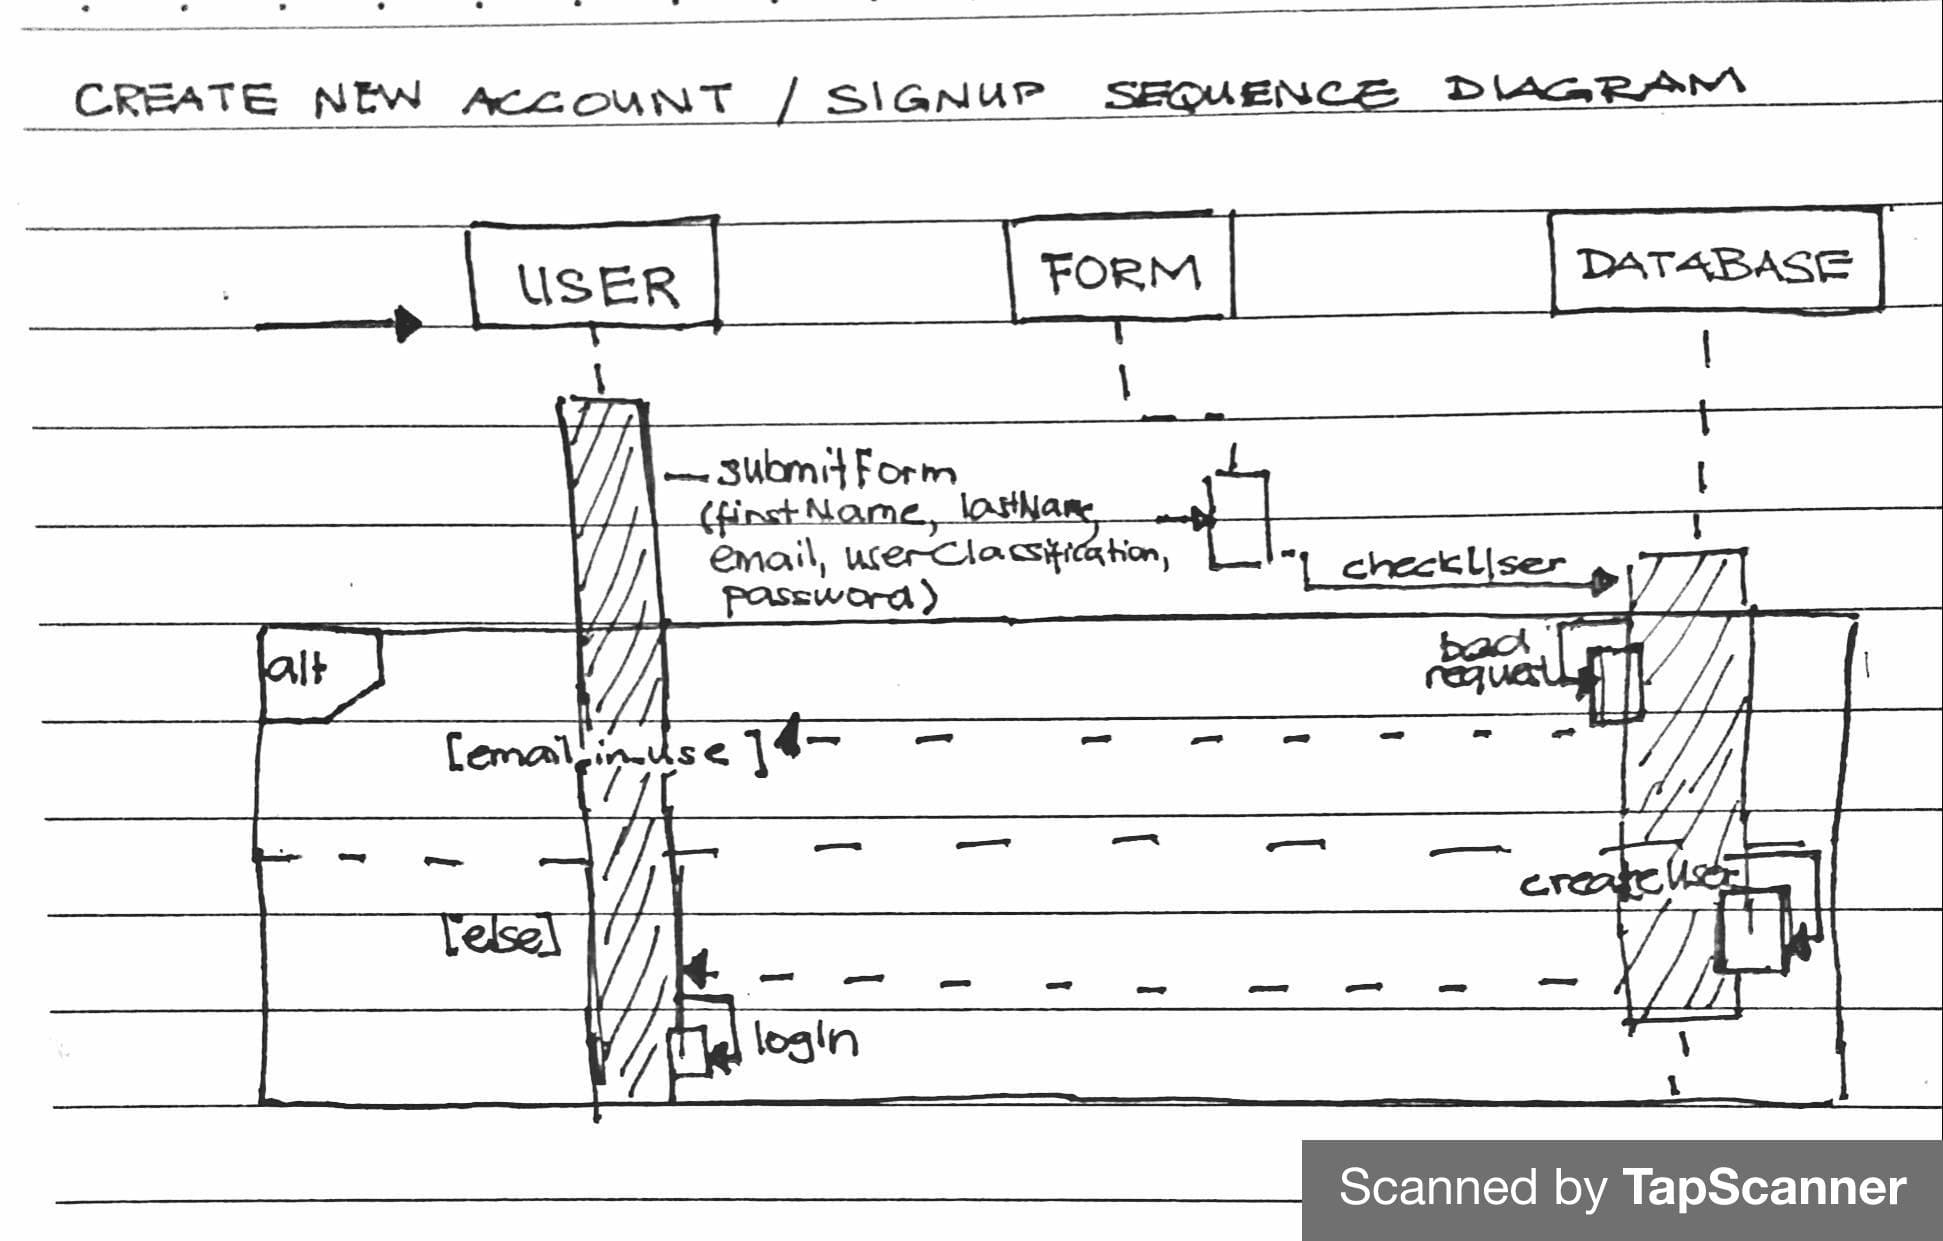 CREATE NEW ACCOUNT / SIGNUP SEQUENCE DIAGRAM
USER
FORM
DATABASE
submitForm
(firstName, lastName,
email, userClassification,
password)
checkUser
alt
bad
request
[email in use]
createUser
[else]
logIn
Scanned by TapScanner